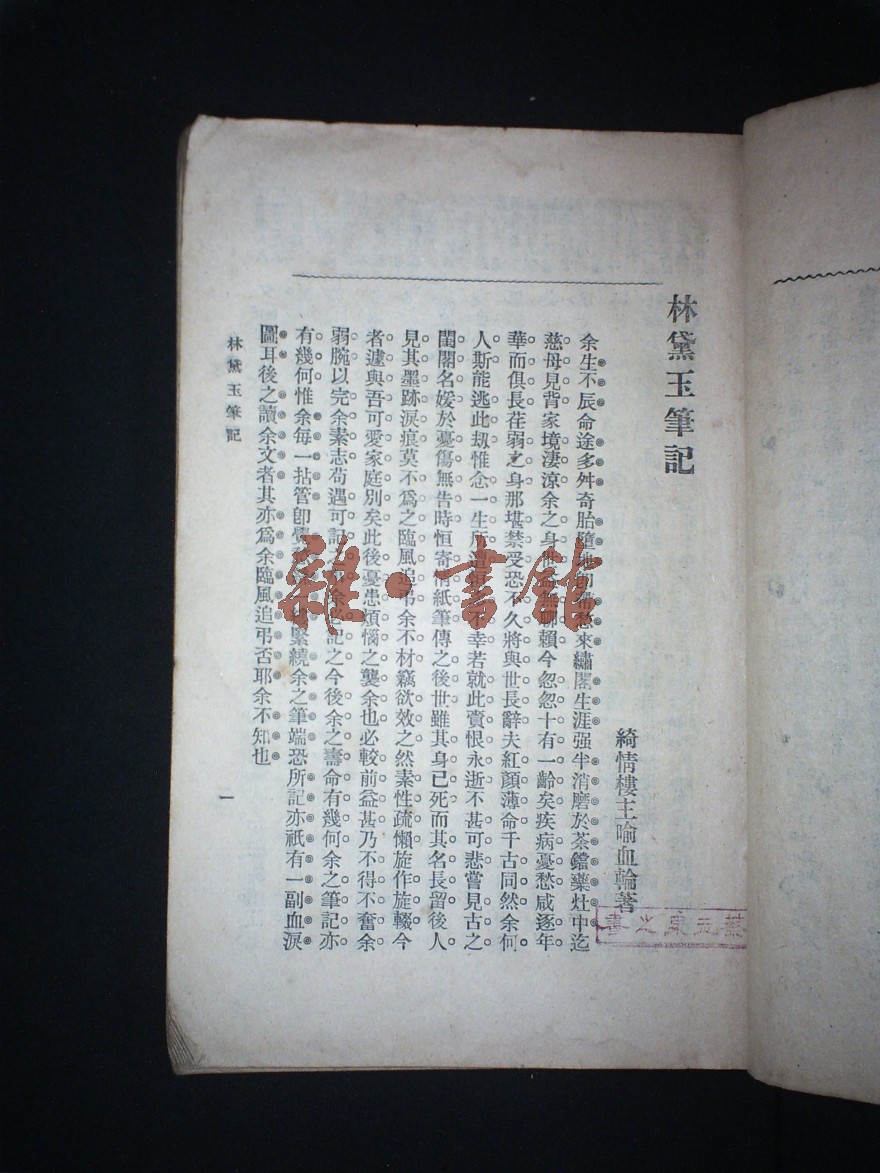 林黛玉筆記
綺情樓主喻血輪著
余生不辰命途多舛奇胎墮地卽帶愁來繡閣生涯强半消磨於茶鐺藥灶中迄
慈母見背家境淒涼余之身世無聊賴今忽忽十有一齡矣疾病憂愁咸逐年
華而俱長荏弱之身那堪禁受恐不久將與世長辭夫紅顏薄命千古同然余何
人斯能逃此劫惟念一生所遭不幸若就此賫恨永逝不甚可悲嘗見古之
閨閣名媛於憂傷無告時恒寄情紙筆傳之後世雖其身已死而其名長留後人
見其墨跡淚痕莫不爲之臨風追弔余不材竊欲效之然素性疏懶旋作旋輟今
者遽與吾可愛家庭別矣此後憂患煩惱之襲余也必較前益甚乃不得不奮余
弱腕以完余素志苟遇可記余必記之今後余之壽命有幾何余之筆記亦
有幾何惟余每一拈管卽覺緊繞余之筆端恐所記亦祇有一副血淚
圖耳後之讀余文者其亦爲余臨風追弔否耶余不知也
林黛玉筆記
一
雜·書館